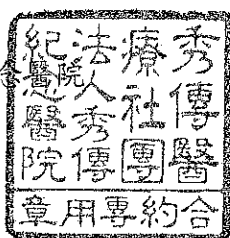 秀傳醫
療社團
法人秀傳
紀念醫院
合約專用章